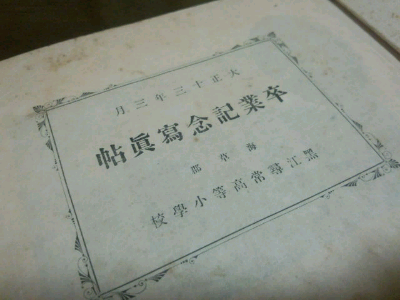 大正十三年三月
卒業記念寫眞帖
海草郡
黑江尋常高等小學校